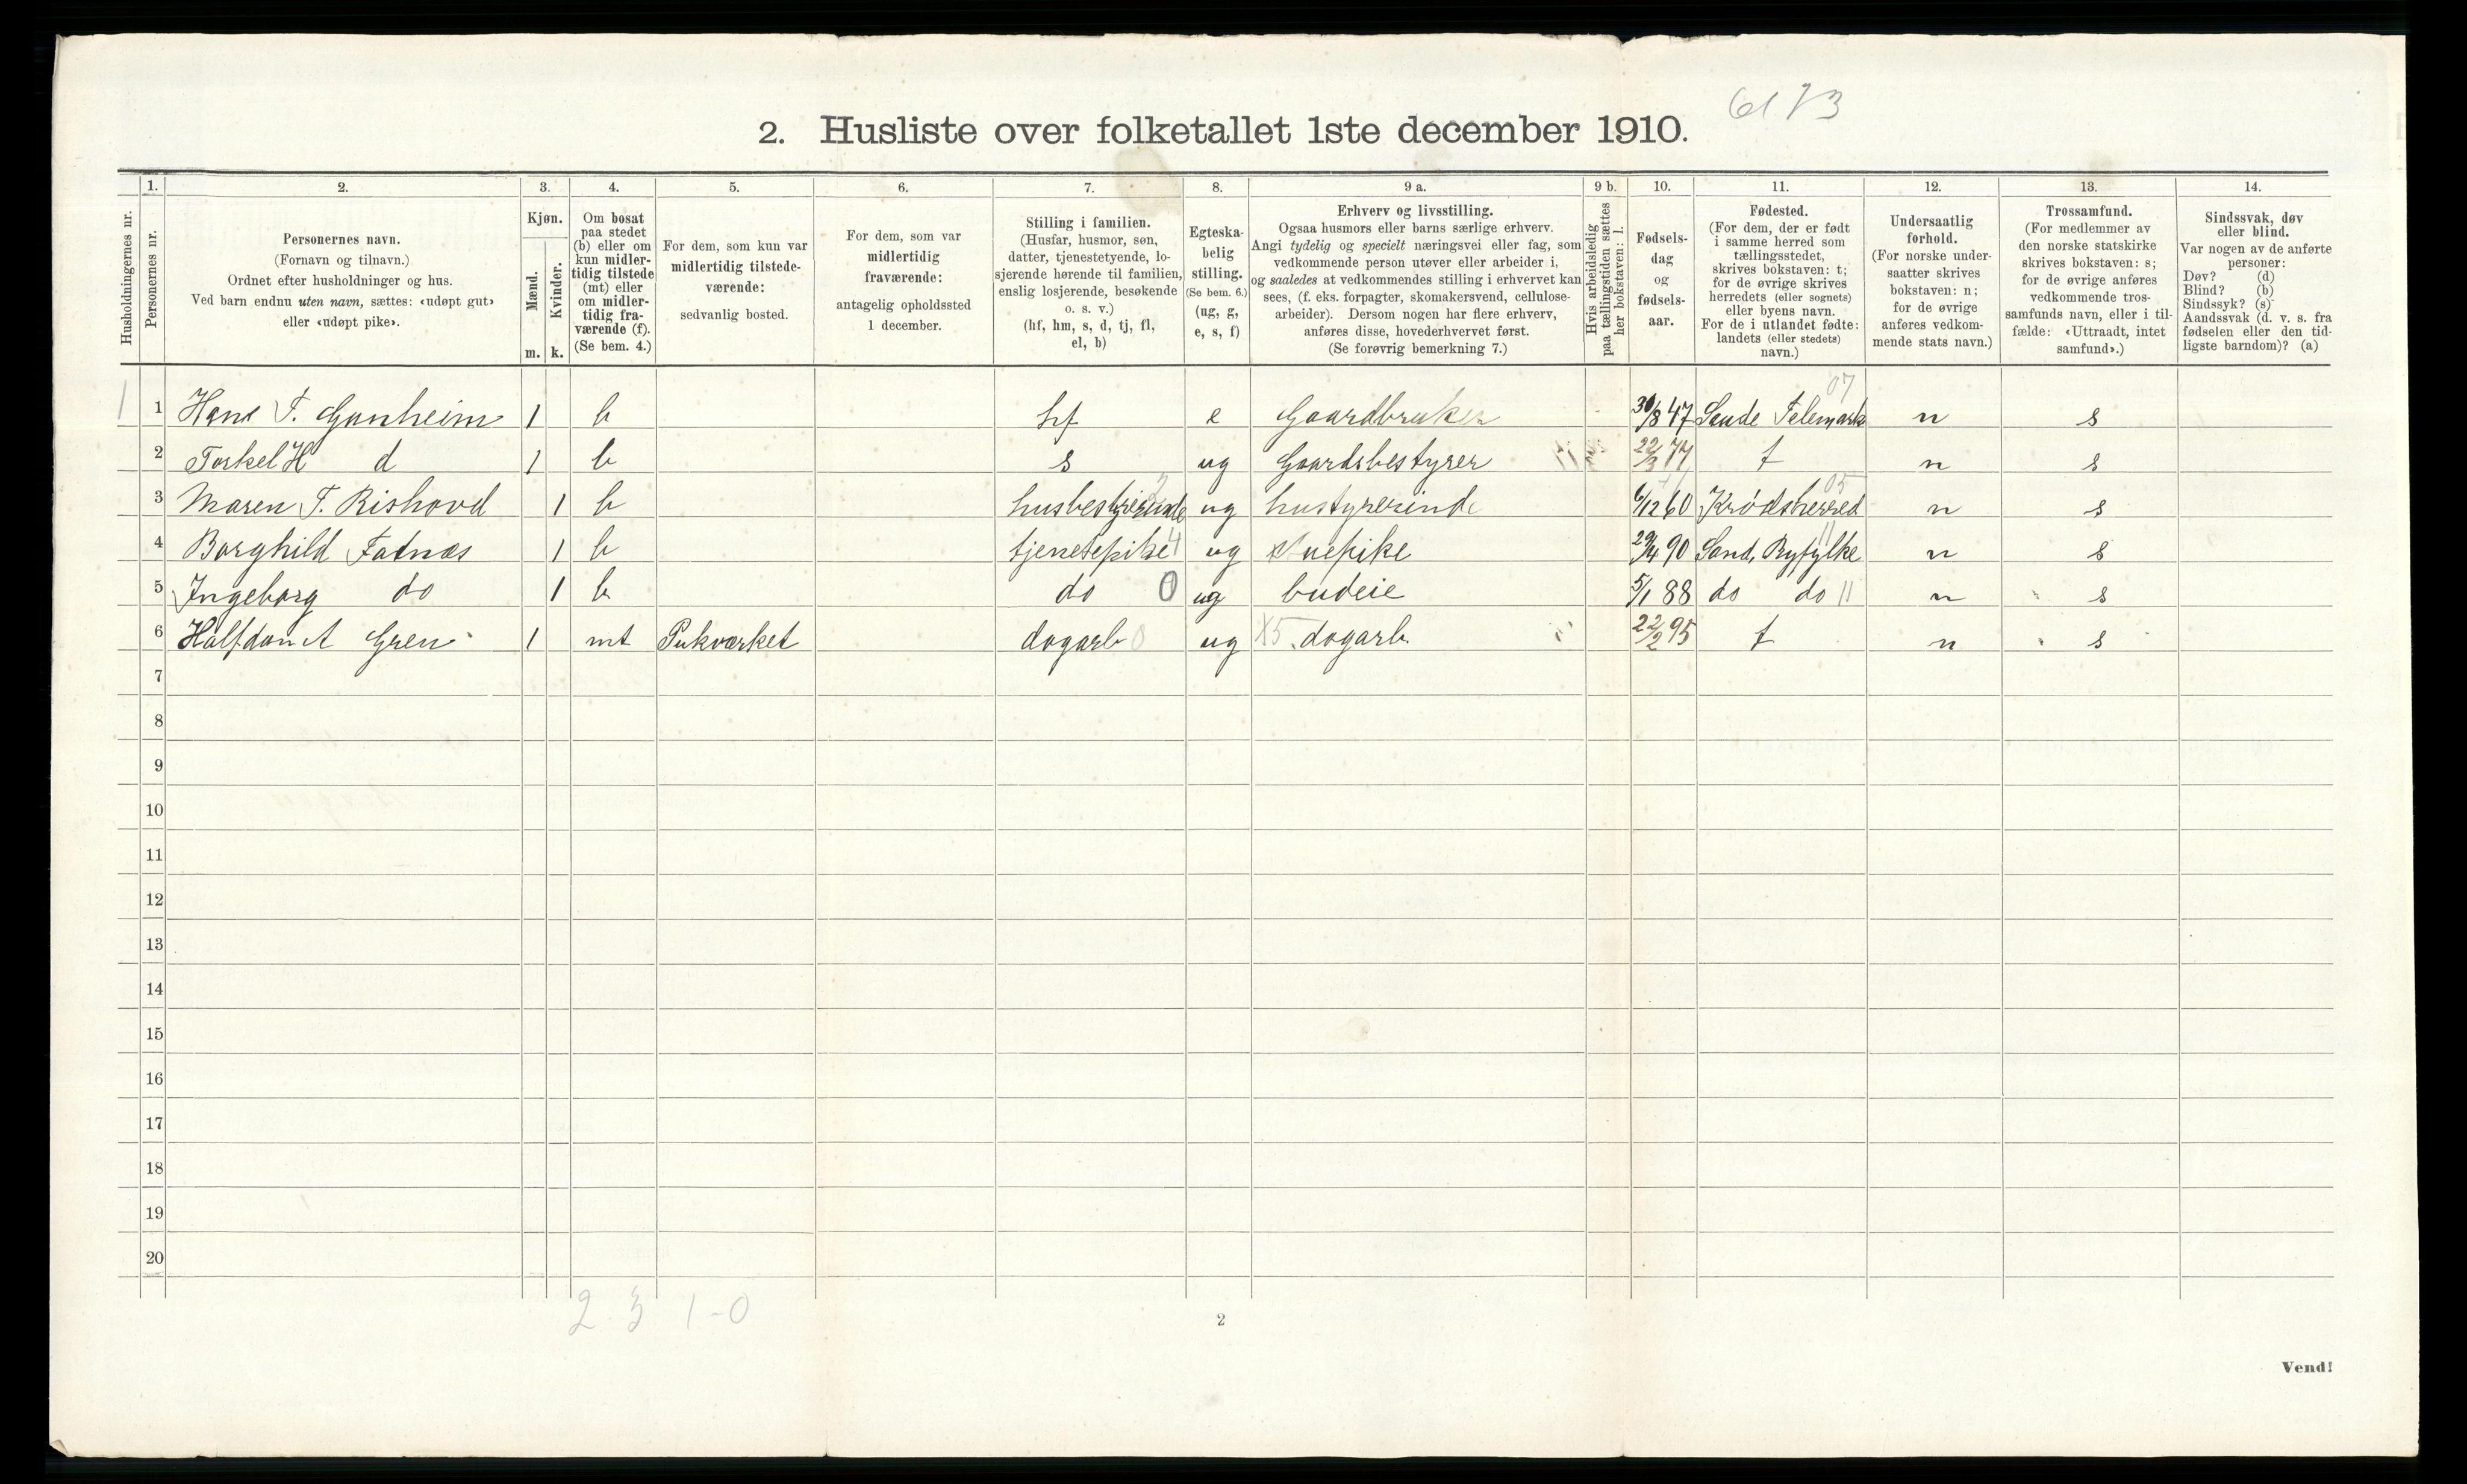 6173
2. Husliste over folketallet 1ste december 1910.
Husholdningernes nr.
1. Personernes nr.
2. Personernes navn.
(Fornavn og tilnavn.)
Ordnet efter husholdninger og hus.
Ved barn endnu uten navn, sættes: «udøpt gut»
eller «udøpt pike».
3. Kjøn.
Mænd. m.
Kvinder. k.
4. Om bosat
paa stedet
(b) eller om
kun midler-
tidig tilstede
(mt) eller
om midler-
tidig fra-
værende (f).
(Se bem. 4.)
5. For dem, som kun var
midlertidig tilstede-
værende:
sedvanlig bosted.
6. For dem, som var
midlertidig
fraværende:
antagelig opholdssted
1 december.
7. Stilling i familien.
(Husfar, husmor, søn,
datter, tjenestetyende, lo-
sjerende hørende til familien,
enslig losjerende, besøkende
o. s. v.)
(hf, hm, s, d, tj, fl,
el, b)
8. Egteska-
belig
stilling.
(Se bem. 6.)
(ug, g,
e, s, f)
9 a. Erhverv og livsstilling.
Ogsaa husmors eller barns særlige erhverv.
Angi tydelig og specielt næringsvei eller fag, som
vedkommende person utøver eller arbeider i,
og saaledes at vedkommendes stilling i erhvervet kan
sees, (f. eks. forpagter, skomakersvend, cellulose-
arbeider). Dersom nogen har flere erhverv,
anføres disse, hovederhvervet først.
(Se forøvrig bemerkning 7.)
9 b. Hvis arbeidsledig
paa tællingstiden sættes
her bokstaven: l.
10. Fødsels-
dag
og
fødsels-
aar.
11. Fødested.
(For dem, der er født
i samme herred som
tællingsstedet,
skrives bokstaven: t;
for de øvrige skrives
herredets (eller sognets)
eller byens navn.
For de i utlandet fødte:
landets (eller stedets)
navn.)
12. Undersaatlig
forhold.
(For norske under-
saatter skrives
bokstaven: n;
for de øvrige
anføres vedkom-
mende stats navn.)
13. Trossamfund.
(For medlemmer av
den norske statskirke
skrives bokstaven: s;
for de øvrige anføres
vedkommende tros-
samfunds navn, eller i til-
fælde: «Uttraadt, intet
samfund».)
14. Sindssvak, døv
eller blind.
Var nogen av de anførte
personer:
Døv? (d)
Blind? (b)
Sindssyk? (s)
Aandssvak (d. v. s. fra
fødselen eller den tid-
ligste barndom)? (a)
07
1 1 Hans T. Gunheim 1 b hf e Gaardbruker 30/8 47 Saude Telemark n s
2 Torkel H d 1 b s ug Gaardsbestyrer 22/3 77 t n s
05
3 Maren T. Rishovd 1 b husbestyrerinde ug hustyrerinde 6/12 60 Krødsherred n s
11
4 Borghild Fatnæs 1 b tjenestepike 4 ug stuepike 29/4 90 Sand, Ryfylke n s
5 Ingeborg do 1 b do 0 ug budeie 5/1 88 do do 11 n s
6 Halfdan A Gren 1 mt Pukværket dagarb 0 ug X5 dagarb. 22/2 95 t n s
7
8
9
10
11
12
13
14
15
16
17
18
19
20
2 3 1-0
2
Vend!